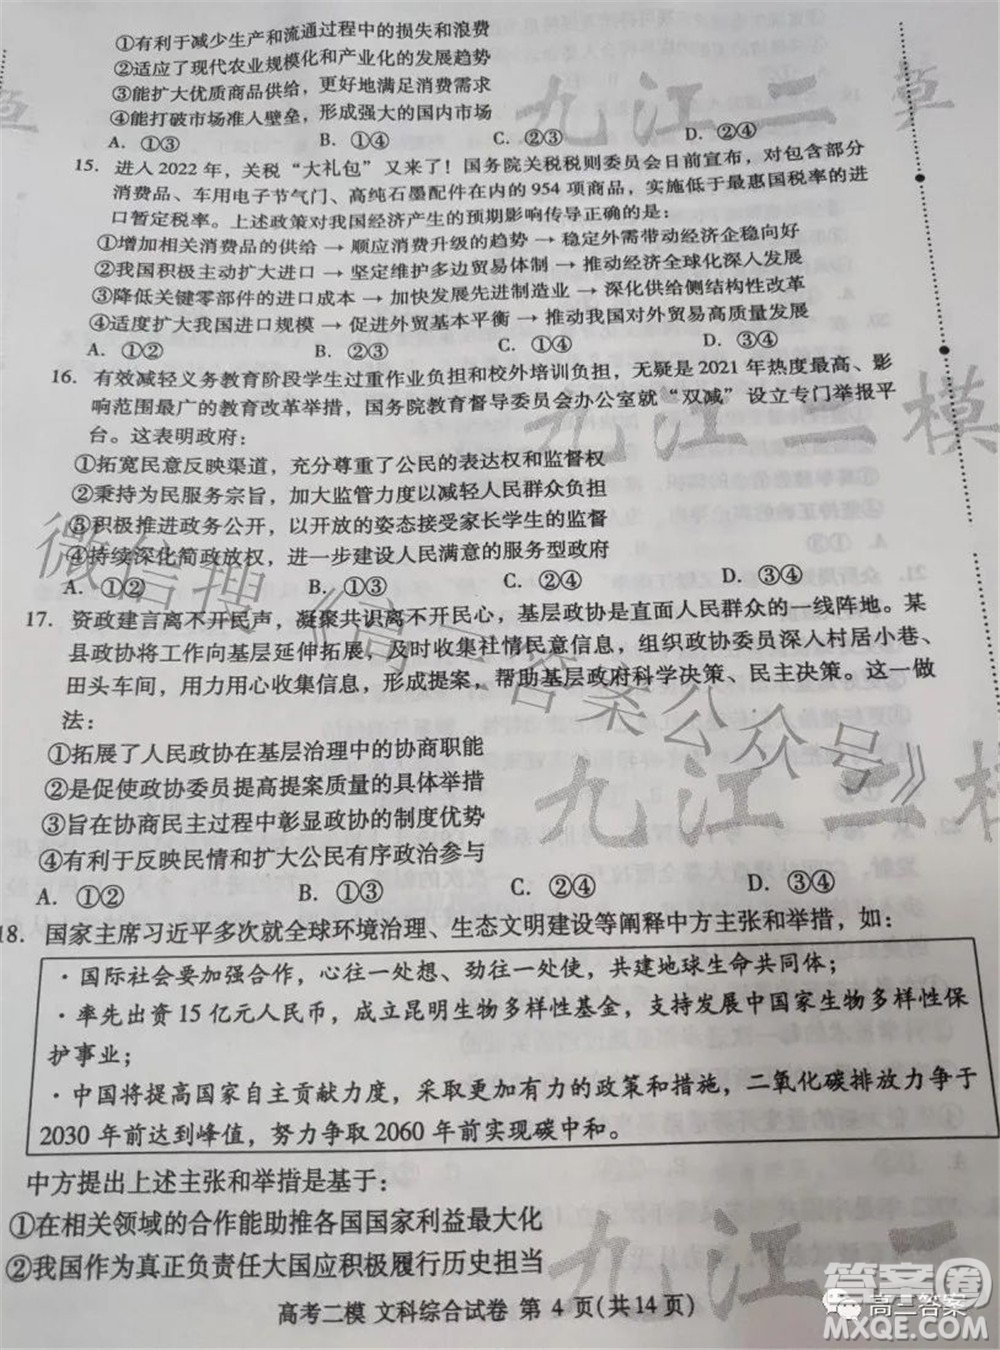 ①有利于减少生产和流通过程中的损失和浪费
②适应了现代农业规模化和产业化的发展趋势
③能扩大优质商品供给，更好地满足消费需求
④能打破市场准入壁垒，形成强大的国内市场
A. ①③ B. ①④ C. ②③ D. ②④
15. 进入2022年，关税“大礼包”又来了！国务院关税税则委员会日前宣布，对包含部分
消费品、车用电子节气门、高纯石墨配件在内的954项商品，实施低于最惠国税率的进
口暂定税率。上述政策对我国经济产生的预期影响传导正确的是：
①增加相关消费品的供给 → 顺应消费升级的趋势 → 稳定外需带动经济企稳向好
②我国积极主动扩大进口 → 坚定维护多边贸易体制 → 推动经济全球化深入发展
③降低关键零部件的进口成本 → 加快发展先进制造业 → 深化供给侧结构性改革
④适度扩大我国进口规模 → 促进外贸基本平衡 → 推动我国对外贸易高质量发展
A. ①② B. ②③ C. ①④ D. ③④
16. 有效减轻义务教育阶段学生过重作业负担和校外培训负担，无疑是2021年热度最高、影
响范围最广的教育改革举措，国务院教育督导委员会办公室就“双减”设立专门举报平
台。这表明政府：
①拓宽民意反映渠道，充分尊重了公民的表达权和监督权
②秉持为民服务宗旨，加大监管力度以减轻人民群众负担
③积极推进政务公开，以开放的姿态接受家长学生的监督
④持续深化简政放权，进一步建设人民满意的服务型政府
A. ①② B. ①③ C. ②④ D. ③④
17. 资政建言离不开民声，凝聚共识离不开民心，基层政协是直面人民群众的一线阵地。某
县政协将工作向基层延伸拓展，及时收集社情民意信息，组织政协委员深入村居小巷、
田头车间，用力用心收集信息，形成提案，帮助基层政府科学决策、民主决策。这一做
法：
①拓展了人民政协在基层治理中的协商职能
②是促使政协委员提高提案质量的具体举措
③旨在协商民主过程中彰显政协的制度优势
④有利于反映民情和扩大公民有序政治参与
A. ①② B. ①③ C. ②④ D. ③④
18. 国家主席习近平多次就全球环境治理、生态文明建设等阐释中方主张和举措，如：
·国际社会要加强合作，心往一处想、劲往一处使，共建地球生命共同体；
·率先出资15亿元人民币，成立昆明生物多样性基金，支持发展中国家生物多样性保
护事业；
·中国将提高国家自主贡献力度，采取更加有力的政策和措施，二氧化碳排放力争于
2030年前达到峰值，努力争取2060年前实现碳中和。
中方提出上述主张和举措是基于：
①在相关领域的合作能助推各国国家利益最大化
②我国作为真正负责任大国应积极履行历史担当
高考二模 文科综合试卷 第 4 页(共14页)
九江二模
九江二模
九江二模
九江二
微信搜《高三答案公众号》
高三答案
答案圈
MXQE.COM